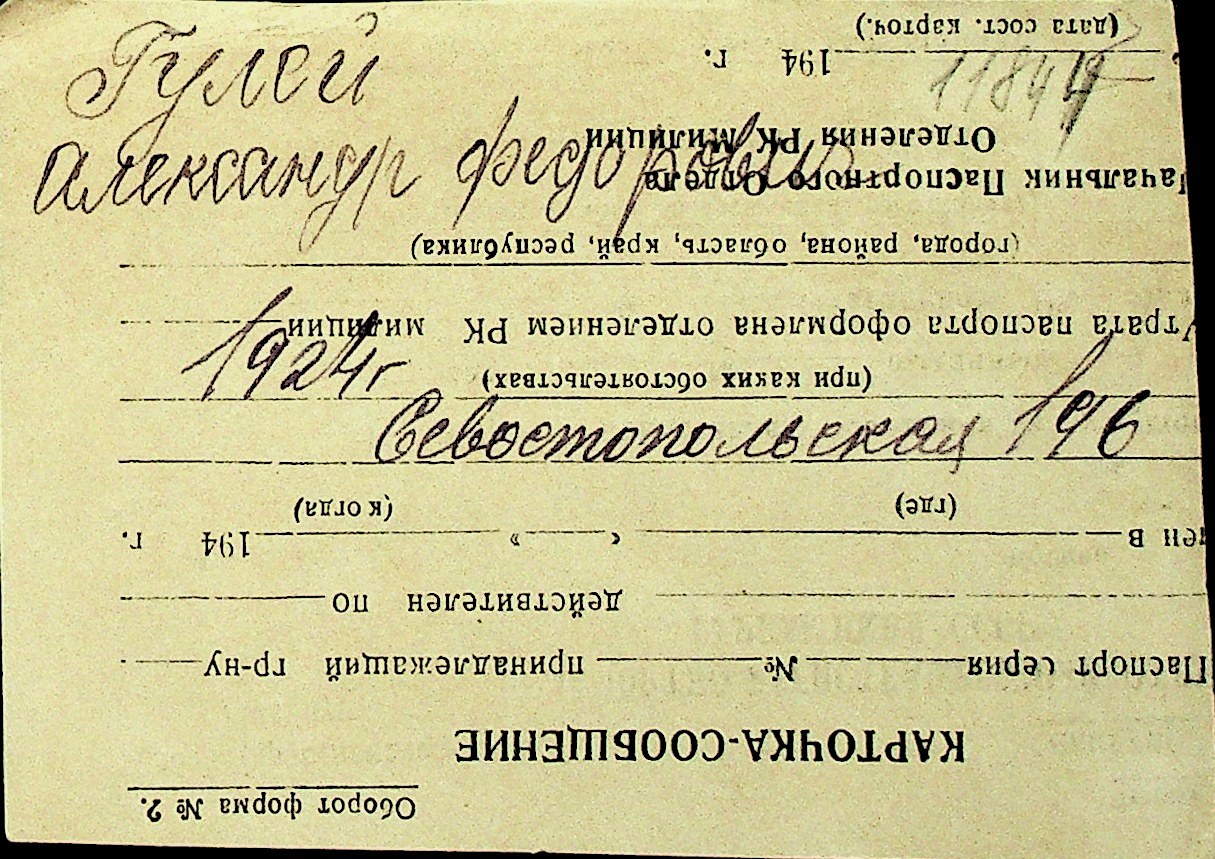 Гулей
Александр Федорович
1924г
Севостопольская 196
11844
Оборот форма № 2.
КАРТОЧКА-СООБЩЕНИЕ
Паспорт серия № принадлежащий гр-ну
действителен по
ден в « » 194 г.
(где) (когда)
(при каких обстоятельствах)
Утрата паспорта оформлена отделением РК милиции
(города, района, область, край, республика)
Начальник Паспортного Отдела
Отделения РК Милиции
194 г.
(дата сост. карточ.)